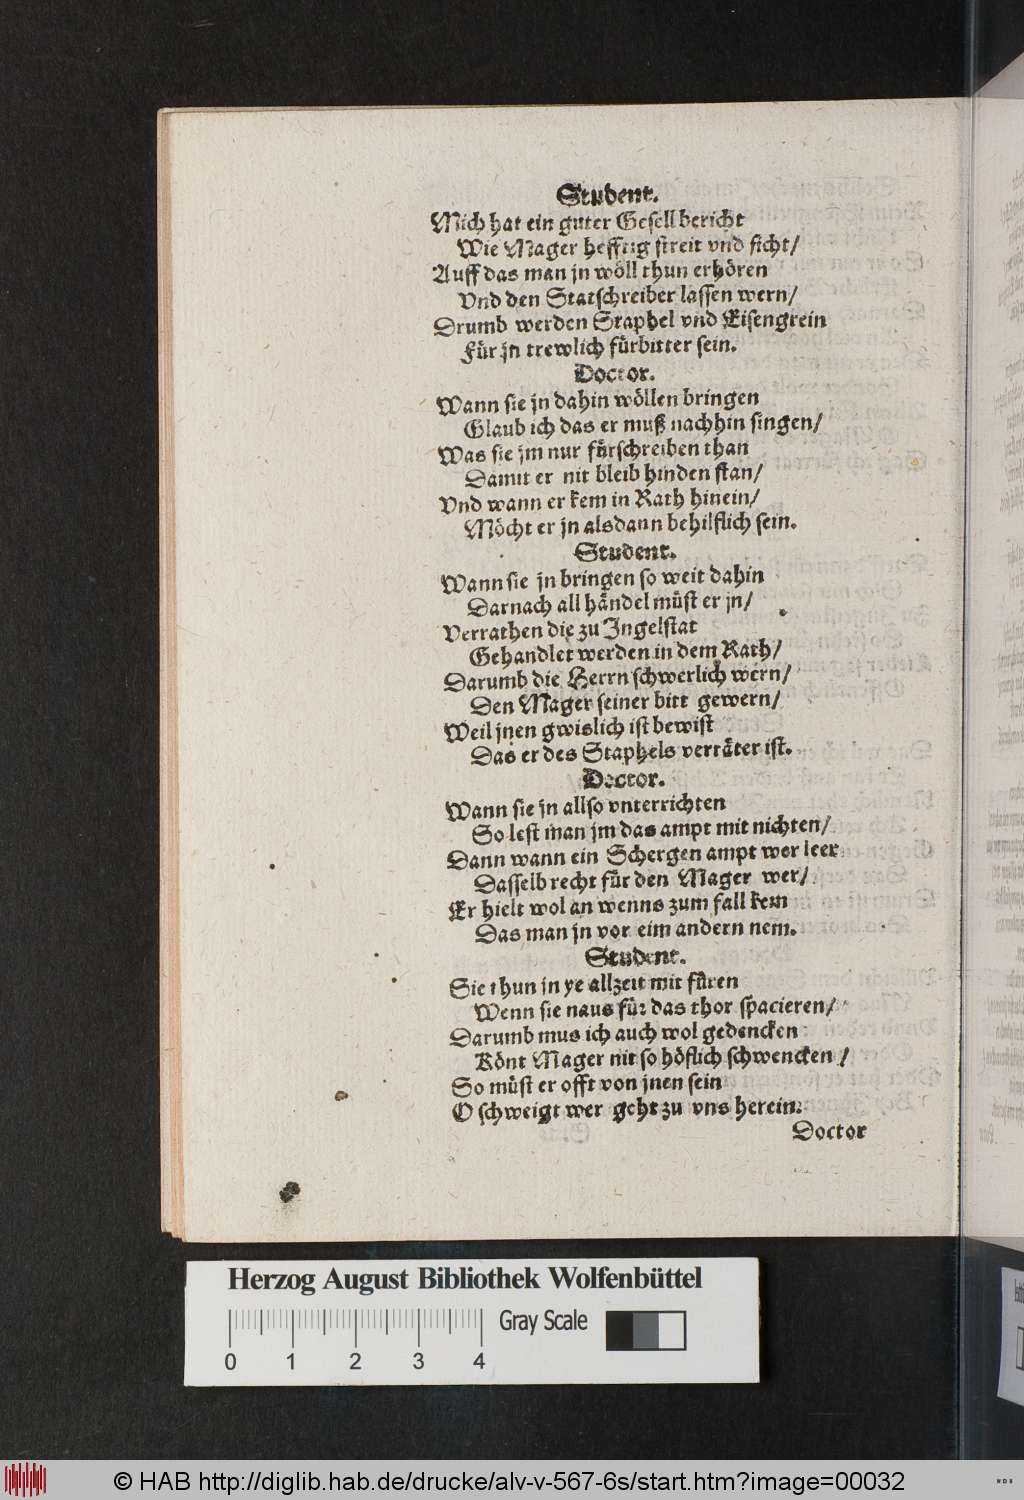 Student.
Mich hat ein guter Gesell bericht
Wie Mager hefftig streit vnd ficht/
Auff das man jn wöll thun erhören
Vnd den Statschreiber lassen wern/
Drumb werden Staphel vnd Eisengrein
Für jn trewlich fürbitter sein.
Doctor.
Wann sie jn dahin wöllen bringen
Glaub ich das er muß nachhin singen/
Was sie jm nur fürschreiben than
Damit er nit bleib hinden stan/
Vnd wann er kem in Rath hinein/
Möcht er jn alsdann behilflich sein.
Student.
Wann sie jn bringen so weit dahin
Darnach all händel müst er jn/
Verrathen die zu Ingelstat
Gehandlet werden in dem Rath/
Darumb die Herrn schwerlich wern/
Den Mager seiner bitt gewern/
Weil jnen gwislich ist bewist
Das er des Staphels verräter ist.
Doctor.
Wann sie jn allso vnterrichten
So lest man jm das ampt mit nichten/
Dann wann ein Schergen ampt wer leer
Dasselb recht für den Mager wer/
Er hielt wol an wenns zum fall kem
Das man jn vor eim andern nem.
Student.
Sie thun jn ye allzeit mit füren
Wenn sie naus für das thor spacieren/
Darumb mus ich auch wol gedencken
Könt Mager nit so höflich schwencken/
So müst er offt von jnen sein
O schweigt wer geht zu vns herein.
Doctor
Herzog August Bibliothek Wolfenbüttel
Gray Scale
0 1 2 3 4
© HAB http://diglib.hab.de/drucke/alv-v-567-6s/start.htm?image=00032